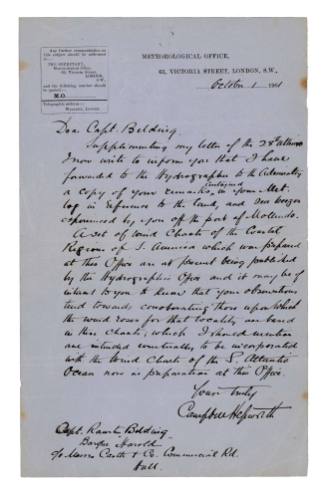 Any further communication on this subject should be addressed to—
THE SECRETARY,
Meteorological Office,
63, Victoria Street,
LONDON,
S.W.,
and the following number should be quoted:
M.O.
Telegraphic address—
Weather, London.
METEOROLOGICAL OFFICE,
63, VICTORIA STREET, LONDON, S.W.,
October 1
Dear Capt. Belding,
Supplementing my letter of the 23rd ultimo
I now write to inform you that I have
forwarded to the Hydrographer to the Admiralty
a copy of your remarks, contained in your Met.
log in reference to the land, and sea breezes
experienced by you off the port of Mollendo.
A set of Wind Charts of the Coastal
Regions of S. America which was prepared
at this Office are at present being published
by the Hydrographic Office and it may be of
interest to you to know that your observations
tend towards corroborating those upon which
the wind roses for that locality are based
in this Charts, which I should mention
are intended eventually to be incorporated
with the Wind Charts of the S. Atlantic
Ocean now in preparation at this Office.
Yours truly
Campbell Hepworth
Capt. Belding
Barque Harold
c/o Messrs & Co. Commercial Rd.
Hull.